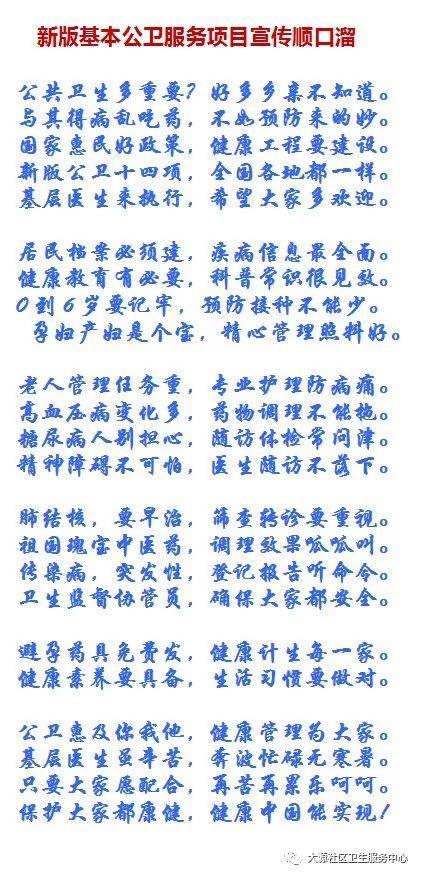 新版基本公卫服务项目宣传顺口溜
公共卫生多重要？好多乡亲不知道。
与其得病乱吃药，不如预防来的妙。
国家惠民好政策，健康工程要建设。
新版公卫十四项，全国各地都一样。
基层医生来执行，希望大家多欢迎。
居民档案必须建，疾病信息最全面。
健康教育有必要，科普常识很见效。
0到6岁要记牢，预防接种不能少。
孕妇产妇是个宝，精心管理照料好。
老人管理任务重，专业护理防病痛。
高血压病变化多，药物调理不能拖。
糖尿病人别担心，随访体检常问津。
精神障碍不可怕，医生随访不落下。
肺结核，要早治，筛查转诊要重视。
祖国瑰宝中医药，调理效果呱呱叫。
传染病，突发性，登记报告听命令。
卫生监督协管员，确保大家都安全。
避孕药具免费发，健康计生每一家。
健康素养要具备，生活习惯要做对。
公卫惠及你我他，健康管理为大家。
基层医生虽辛苦，奔波忙碌无寒暑。
只要大家愿配合，再苦再累乐呵呵。
保护大家都康健，健康中国能实现！
大源社区卫生服务中心